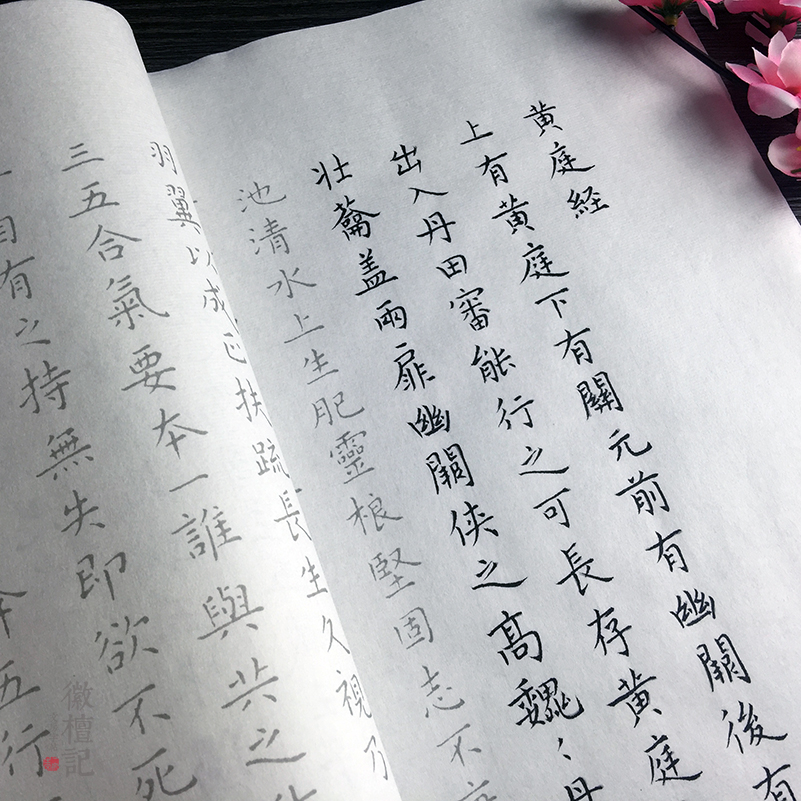 黄庭経
上有黄庭下有關元前有幽闕後有
出入丹田審能行之可長存黄庭
壮蘥盖兩扉幽闕俠之高魏〻丹
池清水上生肥靈根堅固志不
羽翼以成正扶疏長生久視乃
三五合氣要本一誰與共之
自有之持無失即欲不死
五行
徽檀記